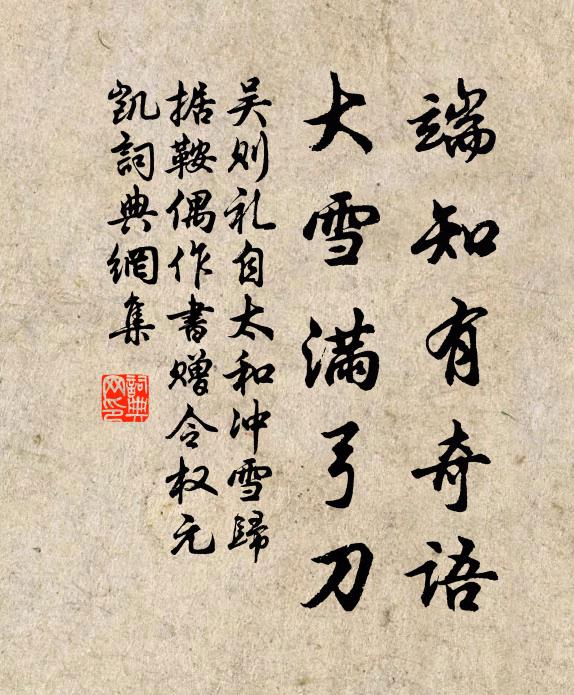 端知有奇语
大雪满弓刀
吴则礼自太和冲雪歸
据鞍偶作書赠令权元
凯詞典網集
詞典网印